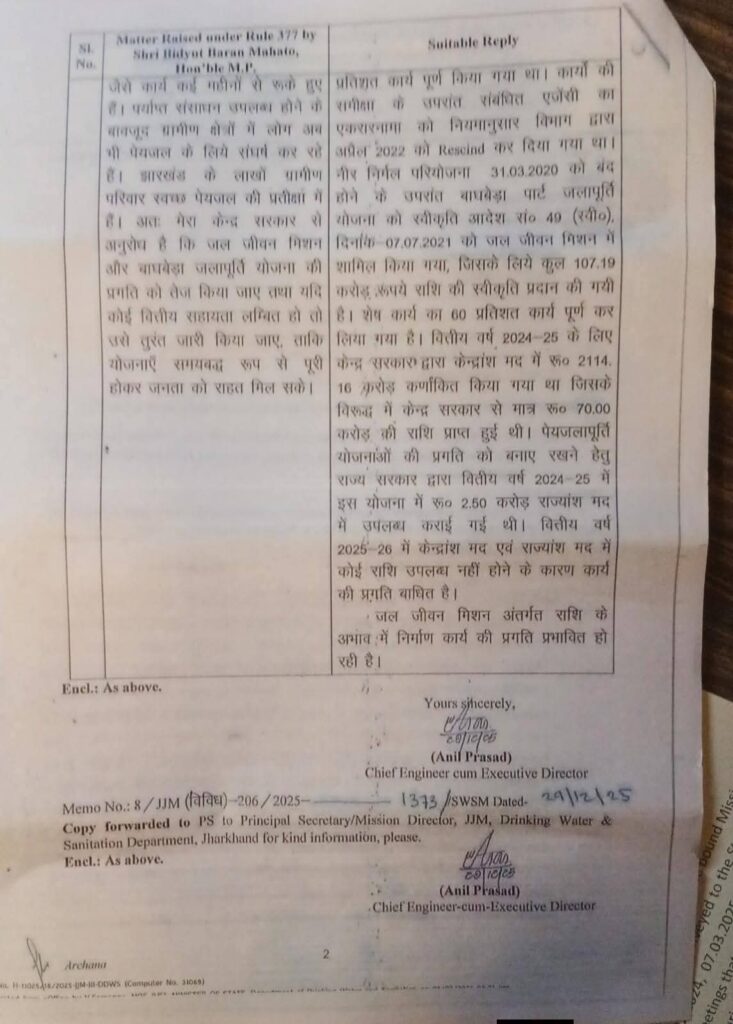 Sl. No.
Matter Raised under Rule 377 by
Shri Bidyut Baran Mahato,
Hon'ble M.P.
Suitable Reply
जैसे कार्य कई महीनों से रूके हुए
हैं। पर्याप्त संसाधन उपलब्ध होने के
बावजूद ग्रामीण क्षेत्रों में लोग अब
भी पेयजल के लिये संघर्ष कर रहे
हैं। झारखंड के लाखों ग्रामीण
परिवार स्वच्छ पेयजल की प्रतीक्षा में
है। अतः मेरा केन्द्र सरकार से
अनुरोध है कि जल जीवन मिशन
और बाघबेड़ा जलापूर्ति योजना की
प्रगति को तेज किया जाए तथा यदि
कोई वित्तीय सहायता लम्बित हो तो
उसे तुरंत जारी किया जाए, ताकि
योजनाएँ समयबद्ध रूप से पूरी
होकर जनता को राहत मिल सके।
प्रतिशत कार्य पूर्ण किया गया था। कार्यों की
समीक्षा के उपरांत संबंधित एजेंसी का
एकरारनामा को नियमानुसार विभाग द्वारा
अप्रैल 2022 को Rescind कर दिया गया था।
नीर निर्मल परियोजना 31.03.2020 को बंद
होने के उपरांत बाघबेड़ा पार्ट जलापूर्ति
योजना को स्वीकृति आदेश सं० 49 (स्वी०),
दिनांक 07.07.2021 को जल जीवन मिशन में
शामिल किया गया, जिसके लिये कुल 107.19
करोड़ रूपये राशि की स्वीकृति प्रदान की गयी
है। शेष कार्य का 60 प्रतिशत कार्य पूर्ण कर
लिया गया है। वित्तीय वर्ष 2024-25 के लिए
केन्द्र सरकार द्वारा केन्द्रांश मद में रू० 2114.
16 करोड़ कर्णांकित किया गया था जिसके
विरूद्ध में केन्द्र सरकार से मात्र रू० 70.00
करोड़ की राशि प्राप्त हुई थी। पेयजलापूर्ति
योजनाओं की प्रगति को बनाए रखने हेतु
राज्य सरकार द्वारा वित्तीय वर्ष 2024-25 में
इस योजना में रू० 2.50 करोड़ राज्यांश मद
में उपलब्ध कराई गई थी। वित्तीय वर्ष
2025-26 में केन्द्रांश मद एवं राज्यांश मद में
कोई राशि उपलब्ध नहीं होने के कारण कार्य
की प्रगति बाधित है।
जल जीवन मिशन अंतर्गत राशि के
अभाव में निर्माण कार्य की प्रगति प्रभावित हो
रही है।
Encl.: As above.
Yours sincerely,
(Anil Prasad)
Chief Engineer cum Executive Director
Memo No.: 8/JJM (विविध)-206/2025- 1373 /SWSM Dated- 29/12/25
Copy forwarded to PS to Principal Secretary/Mission Director, JJM, Drinking Water &
Sanitation Department, Jharkhand for kind information, please.
Encl.: As above.
(Anil Prasad)
Chief Engineer-cum-Executive Director
2
Archana
(Computer No. 31068)
bound Miss
veyed to the s
24, 07.03.202
etings tha